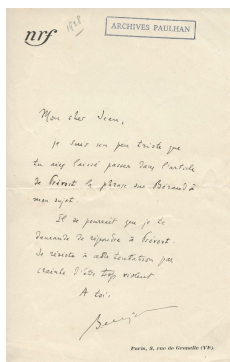 nrf
1928
ARCHIVES PAULHAN
Mon cher Jean,
je suis un peu triste que
tu aies laissé passer dans l'article
de Prévost la phrase sur Béraud à
mon sujet.
Il se pourrait que je te
demande de répondre à Prévost.
Je résiste à cette tentation par
crainte d'être trop violent.
A toi.
Paris, 3, rue de Grenelle (VIᵉ).